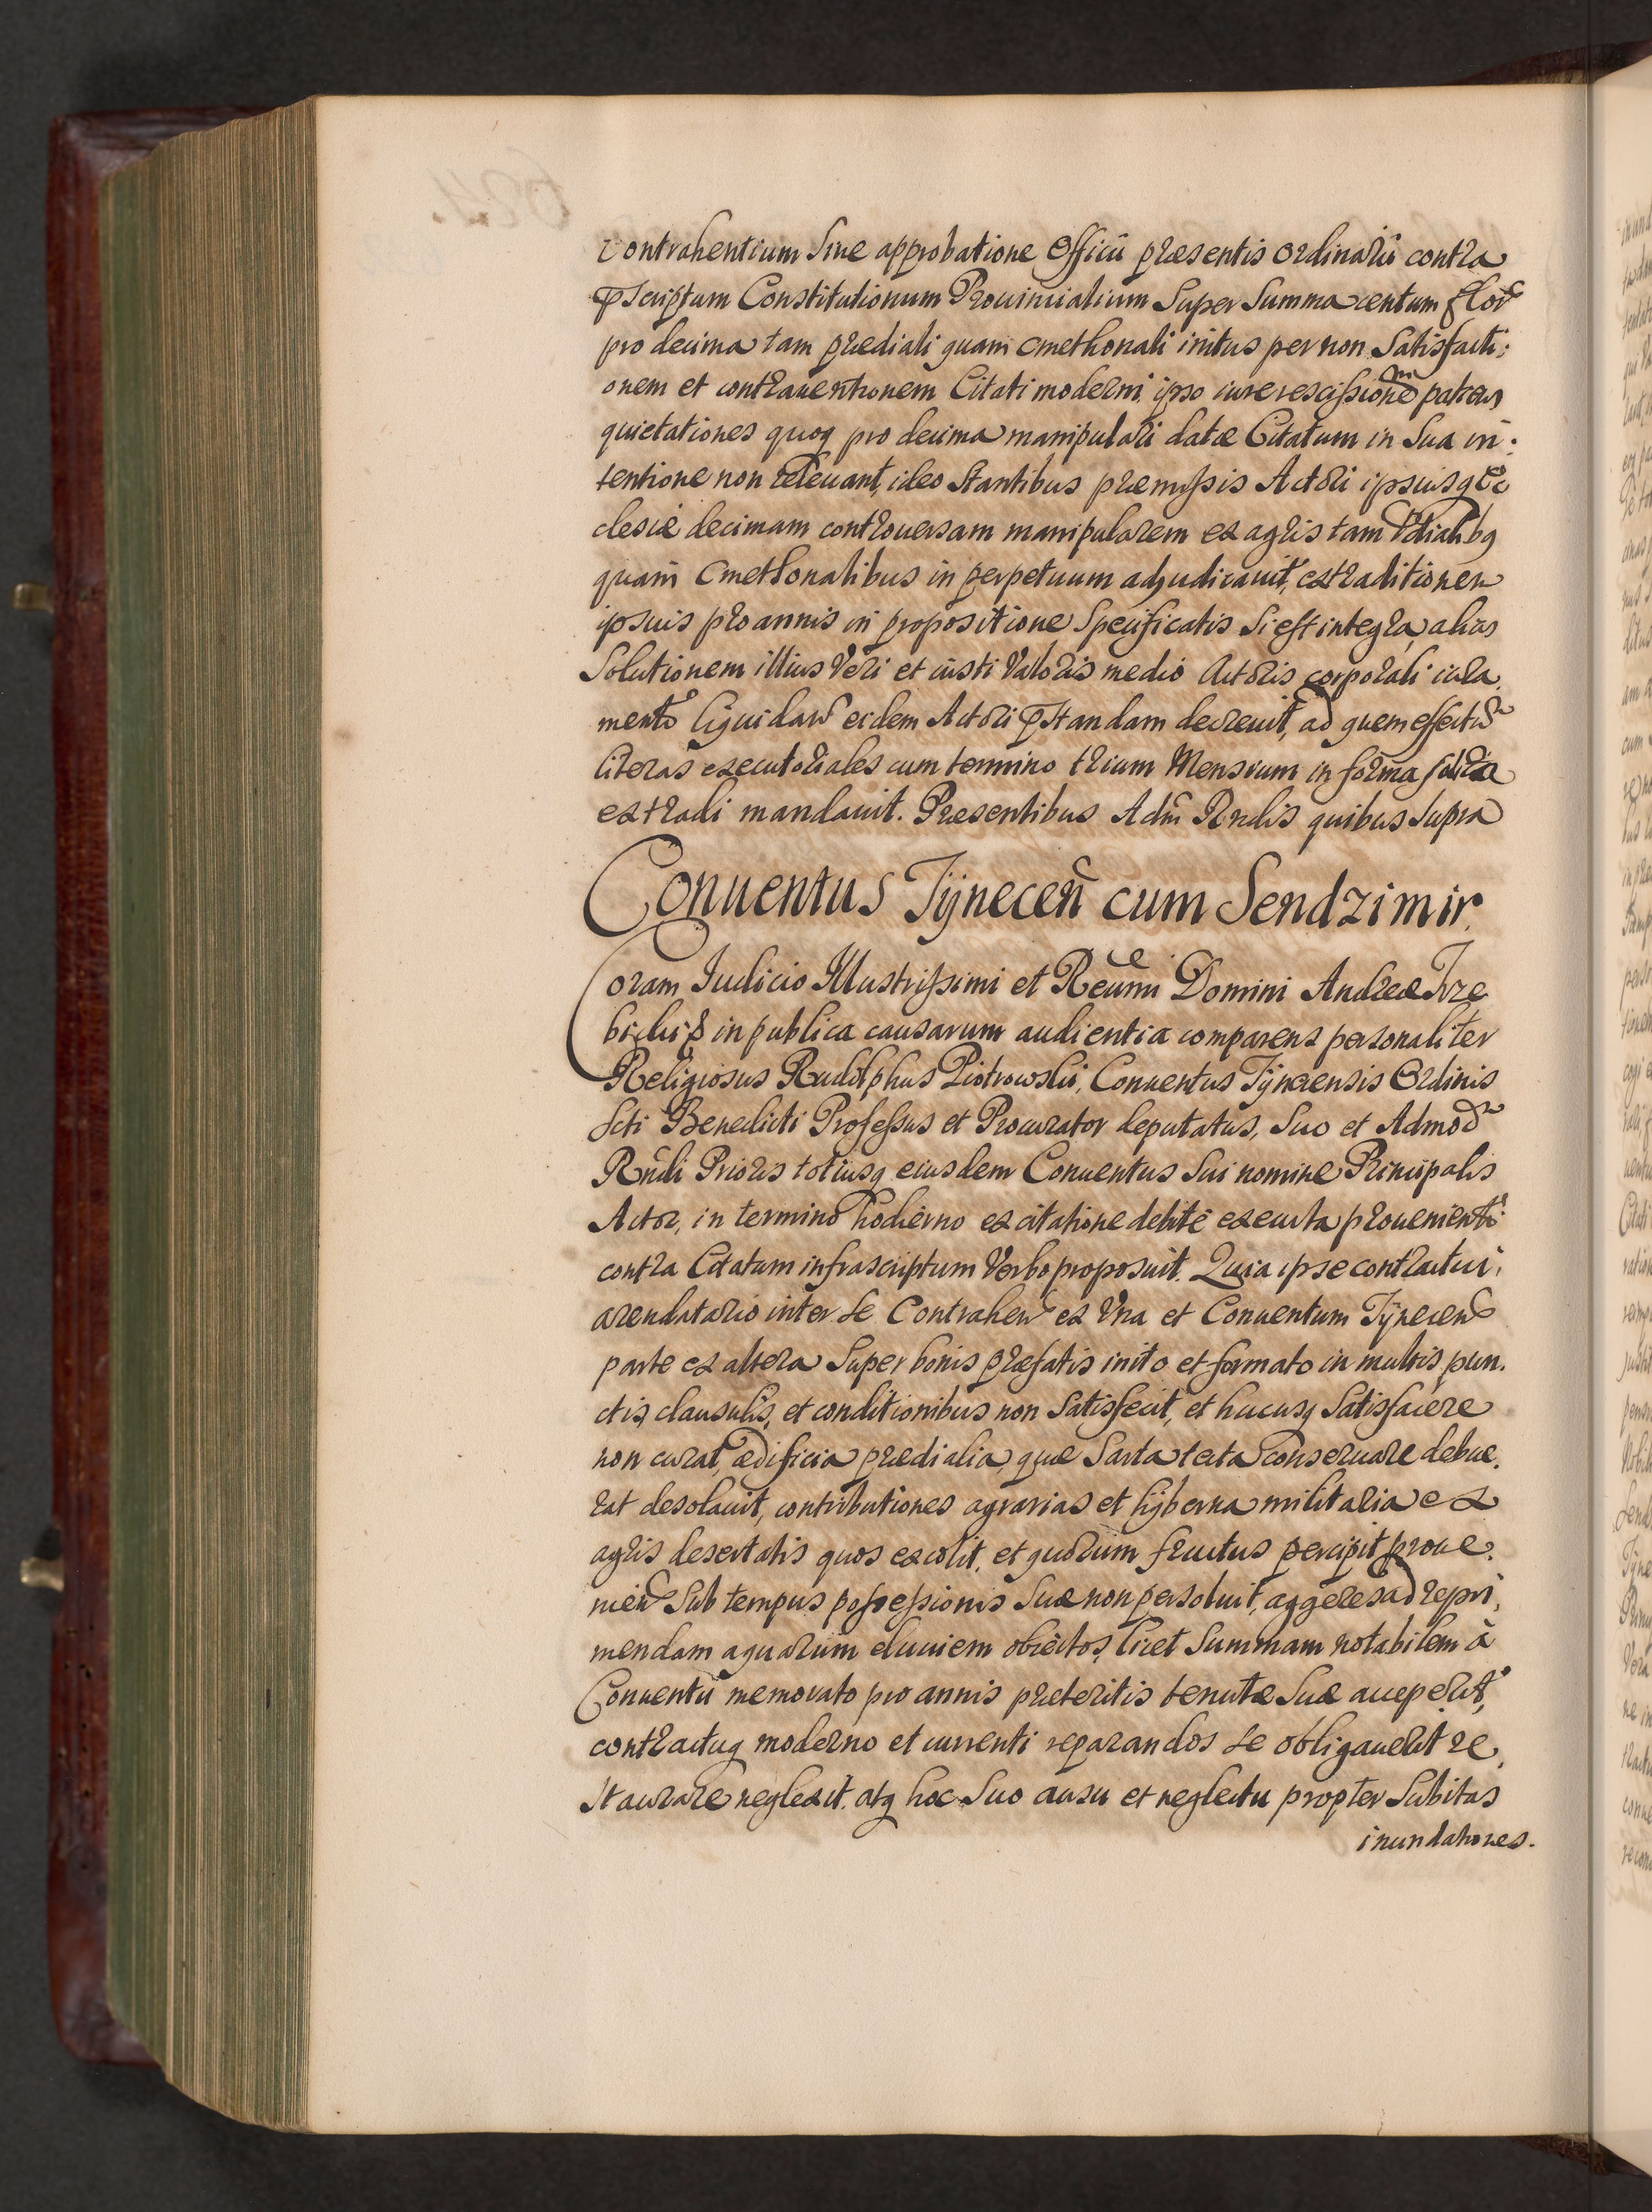 contrahentium sine approbatione Officii præsentis ordinarii contra
pscriptum Constitutionum Prouincialium super summa centum flor
pro decima tam prædiali quam cmethonali initus per non satisfacti:
onem et contrauentionem Citati moderni ipso iure rescissionem patiens
quietationes quoq pro decima manipulari datæ Citatum in sua in:
tentione non releuant, ideo stantibus præmissis Actori ipsiusq Ec
clesiæ decimam controuersam manipularem ex agris tam prædialibq
quam Cmethonalibus in perpetuum adjudicauit, extraditionem
ipsius pro annis in propositione specificatis si est integra, alias
solutionem illius veri et iusti valoris medio Actoris corporali iura
mento liquidan eidem Actori pstandam decreuit, ad quem effectū
literas executoriales cum termino trium Mensium in forma solita
extradi mandauit. Præsentibus Adm Rndis quibus supra
Conuentus Tÿnecen̄ cum Sendzimir.
Coram Iudicio Illustrissimi et Reumi Domini Andreæ Trze
bicki & in publica causarum audientia comparens personaliter
Religiosus Rudolphus Piotrowski, Conuentus Tÿnecensis Ordinis
Scti Benedicti Professus et Procurator deputatus, suo et Admod
Rndi Prioris totiusq eiusdem Conuentus sui nomine Principalis
Actor, in termino hodierno ex citatione debite executa prouenienti
contra Citatum infrascriptum verbo proposuit. Quia ipse contractui
arendatorio inter se Contrahen ex vna et Conuentum Tÿnecen
parte ex altera super bonis præfatis inito et formato in multis pun.
ctis, clausulis, et conditionibus non satisfecit, et hucusq satisfacere
non curat, ædificia prædialia, quæ sarta tecta conseruare debue.
rat desolauit, contributiones agrarias et hÿberna militaria ex
agris desertatis quos excolit, et quorum fructus percipit proue.
nien sub tempus possessionis suæ non persoluit, aggeres ad repri,
mendam aquarum eluuiem obiectos, licet summam notabilem à
Conuentu memorato pro annis præteritis tenutæ suæ acceperit,
contractuq moderno et currenti reparandos se obligauerit re,
staurare neglexit. atq hoc suo ausu et neglectu propter subitas
inundationes.